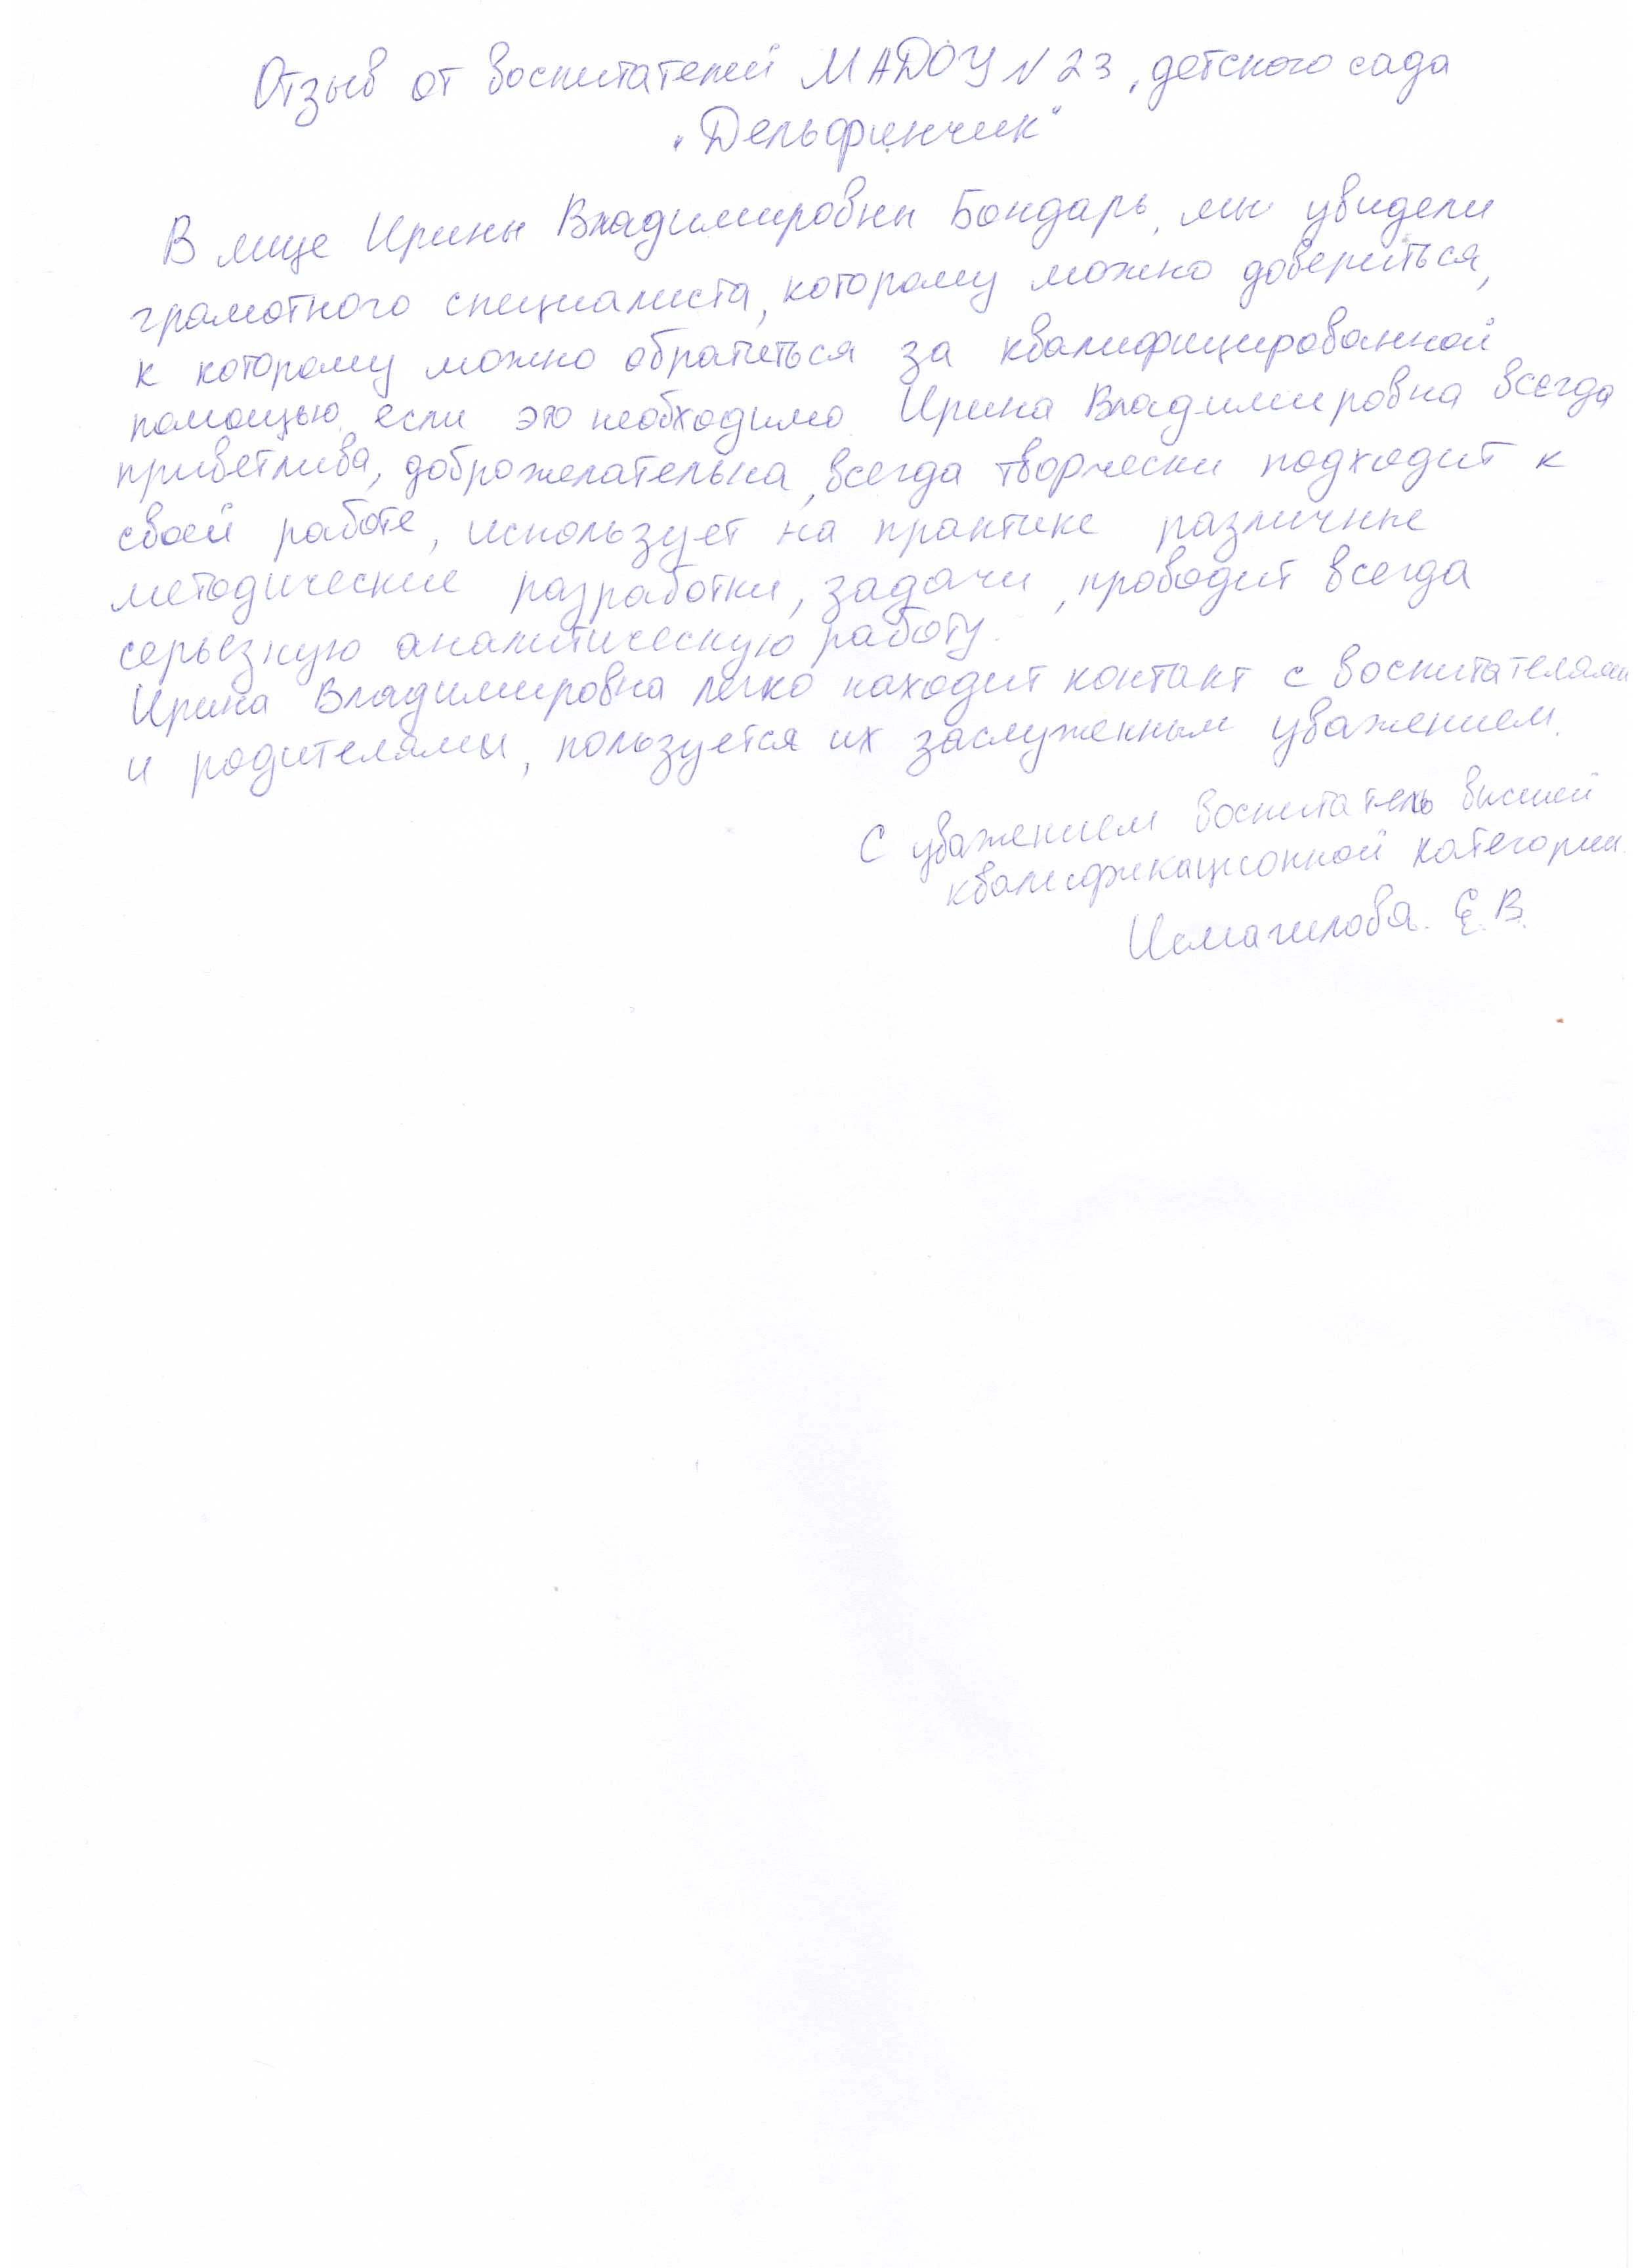 Отзыв от воспитателей МАДОУ N 23, детского сада
"Дельфинчик"
В лице Ирины Владимировны Бондарь, мы увидели
грамотного специалиста, которому можно довериться,
к которому можно обратиться за квалифицированной
помощью, если это необходимо. Ирина Владимировна всегда
приветлива, доброжелательна, всегда творчески подходит к
своей работе, использует на практике различные
методические разработки, задачи, проводит всегда
серьезную аналитическую работу.
Ирина Владимировна легко находит контакт с воспитателями
и родителями, пользуется их заслуженным уважением.
С уважением воспитатель высшей
квалификационной категории.
Исмагилова. Е.В.